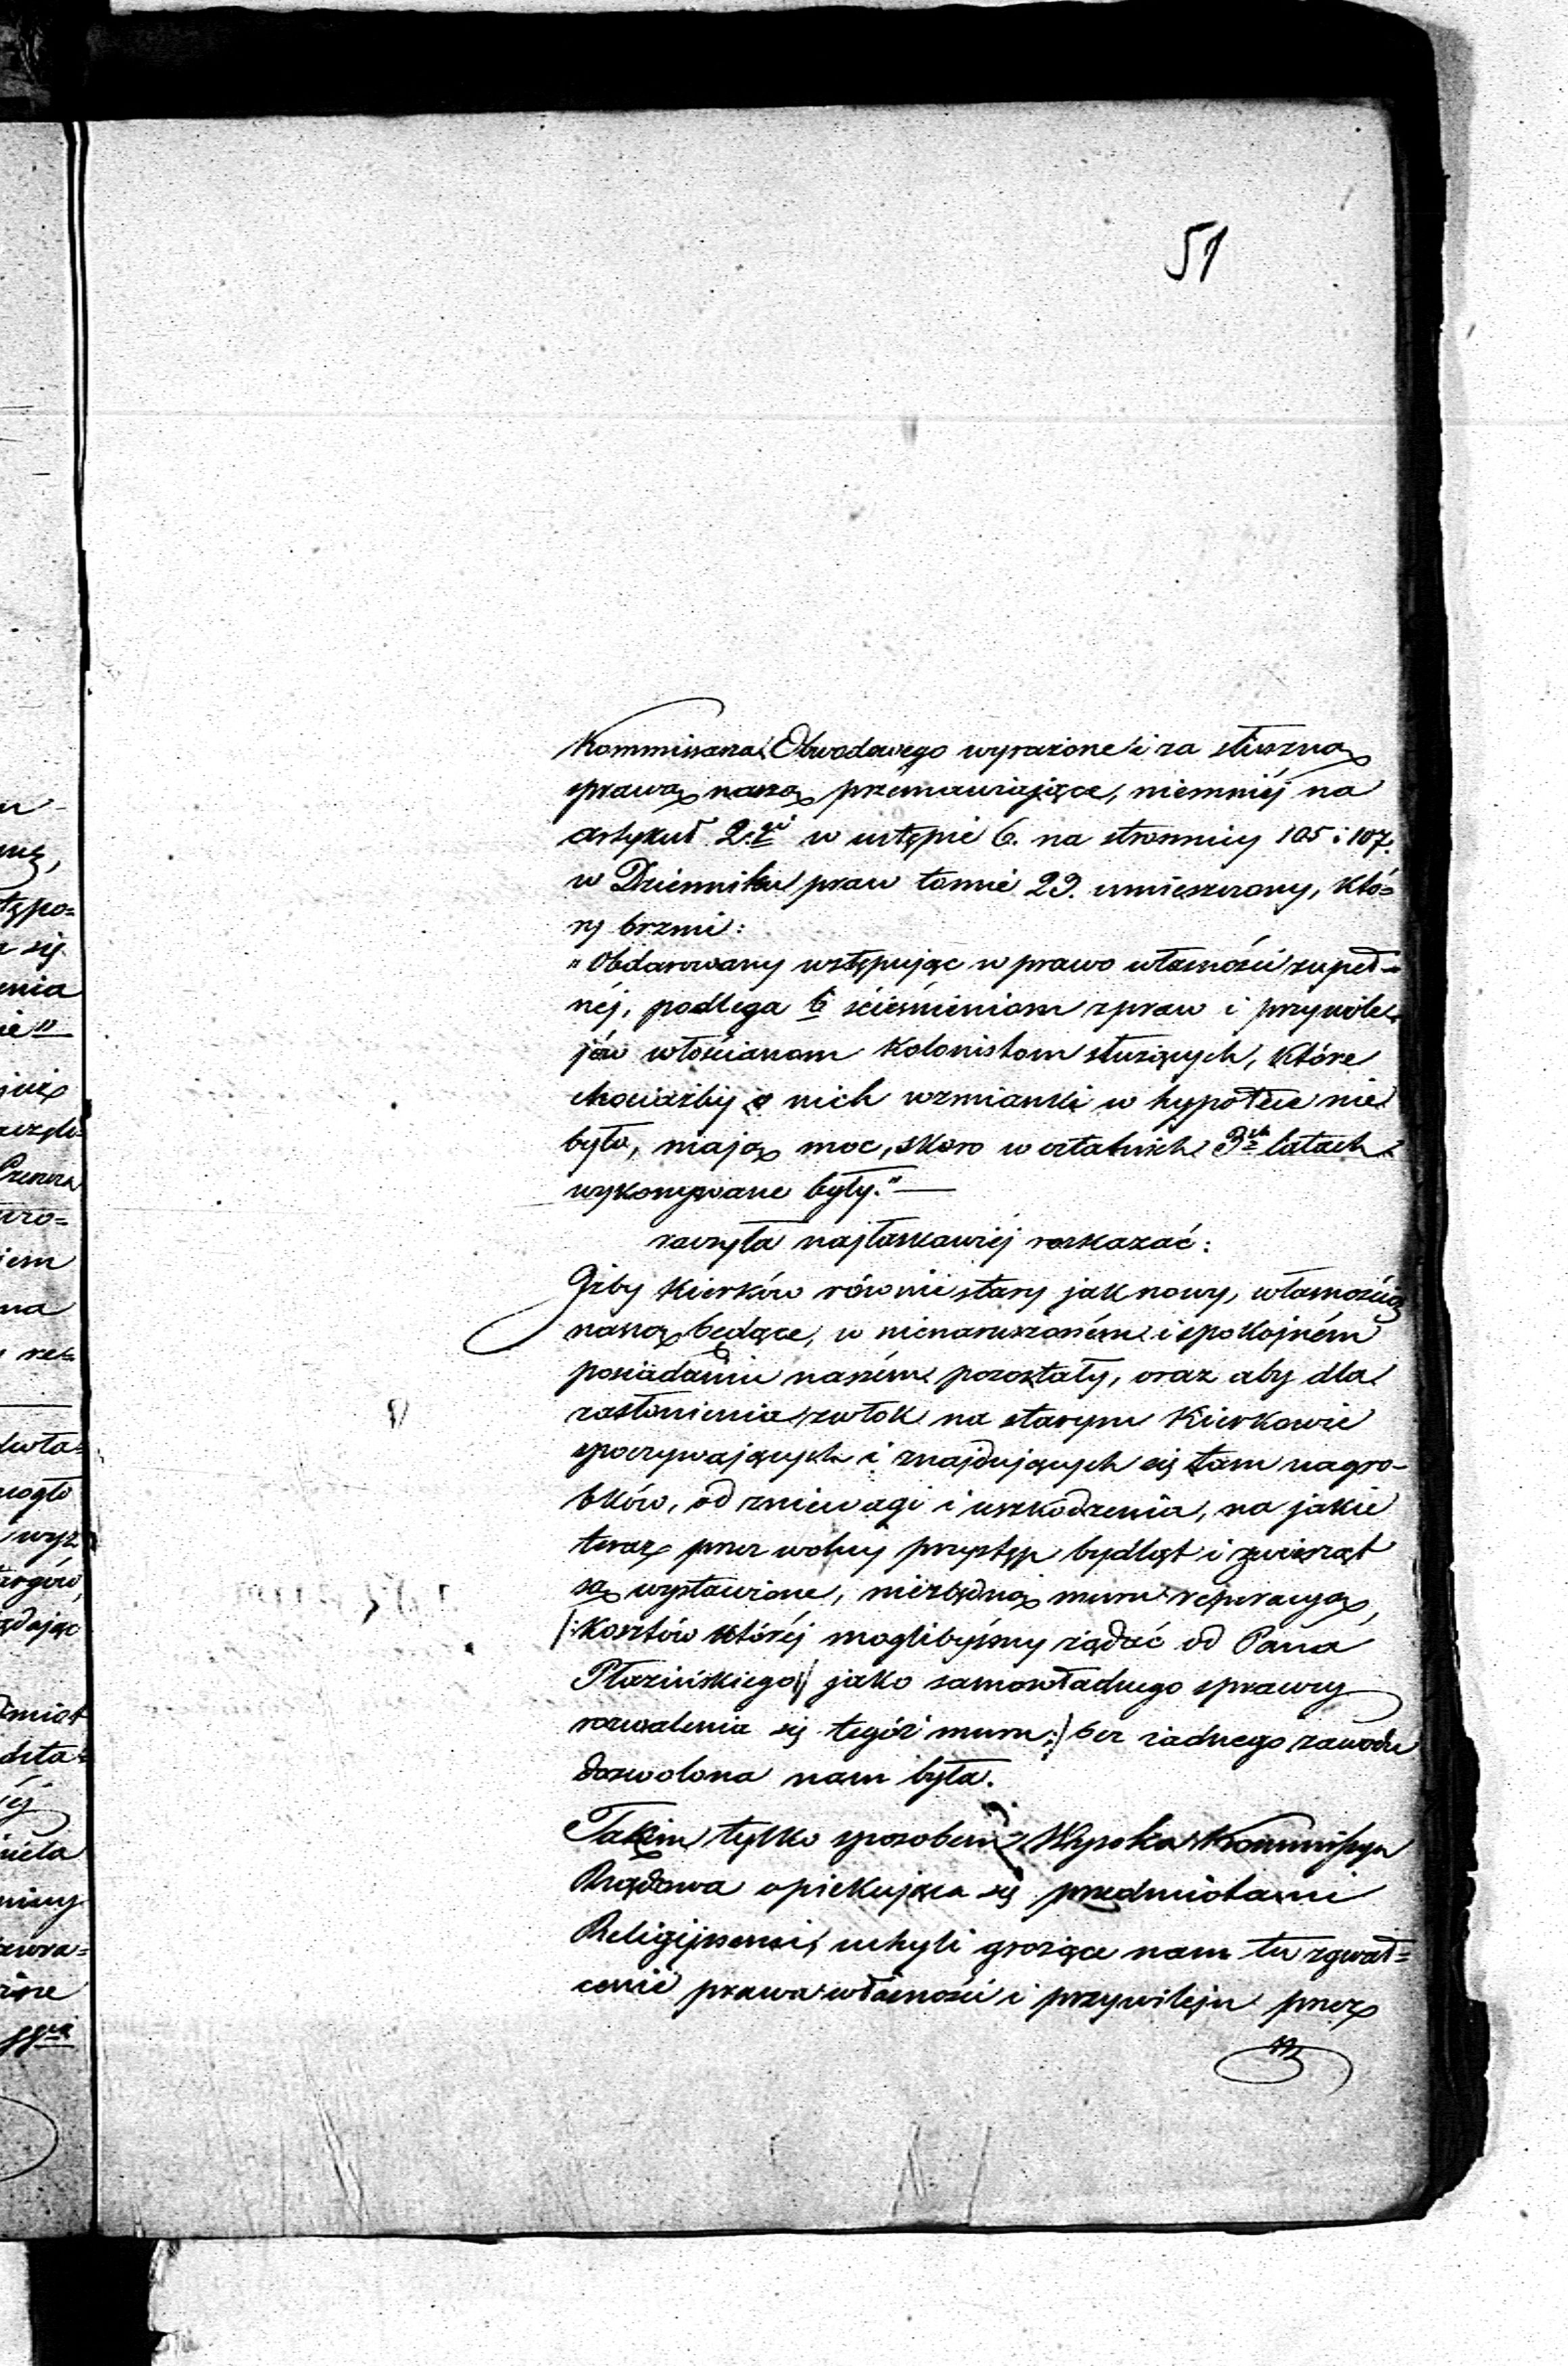 51
Kommissarza Obwodowego wyrażone i za słuszną
sprawą naszą przemawiające, niemniéj na
artykuł 2.gi w ustępie 6. na stronnicy 105 i 107.
w Dzienniku praw tomie 29. umieszczony, któ=
ry brzmi:
"Obdarowany wstępując w prawo własności zupeł=
néj, podlega ścieśnieniom z praw i przywile=
jów włościanom kolonistom służących, które
chociażby o nich wzmianki w hypotece nie
było, mają moc, skoro w ostatnich 3ch latach
wykonywane były."—
raczyła najłaskawiéj rozkazać:
Iżby kierków równie stary jak nowy, własnością
naszą będące, w nienaruszoném i spokojném
posiadaniu naszém pozostały, oraz aby dla
zasłonienia zwłok na starym Kierkowie
spoczywających i znajdujących się tam nagro-
bków, od zniewagi i uszkodzenia, na jakie
teraz przez wolny przystęp bydląt i zwierząt
są wystawione, niezbędną muru reperacyą,
/: kosztów któréj moglibyśmy żądać od Pana
Płazińskiego jako samowładnego sprawcy
rozwalenia się tegóż muru :/ bez żadnego zawodu
dozwolona nam była.
Takim tylko sposobem Wysoka Kommissya
Rządowa opiekująca się przedmiotami
Religijnemi, uchyli grożące nam tu zgwał=
cenie prawa własności i przywileju przez